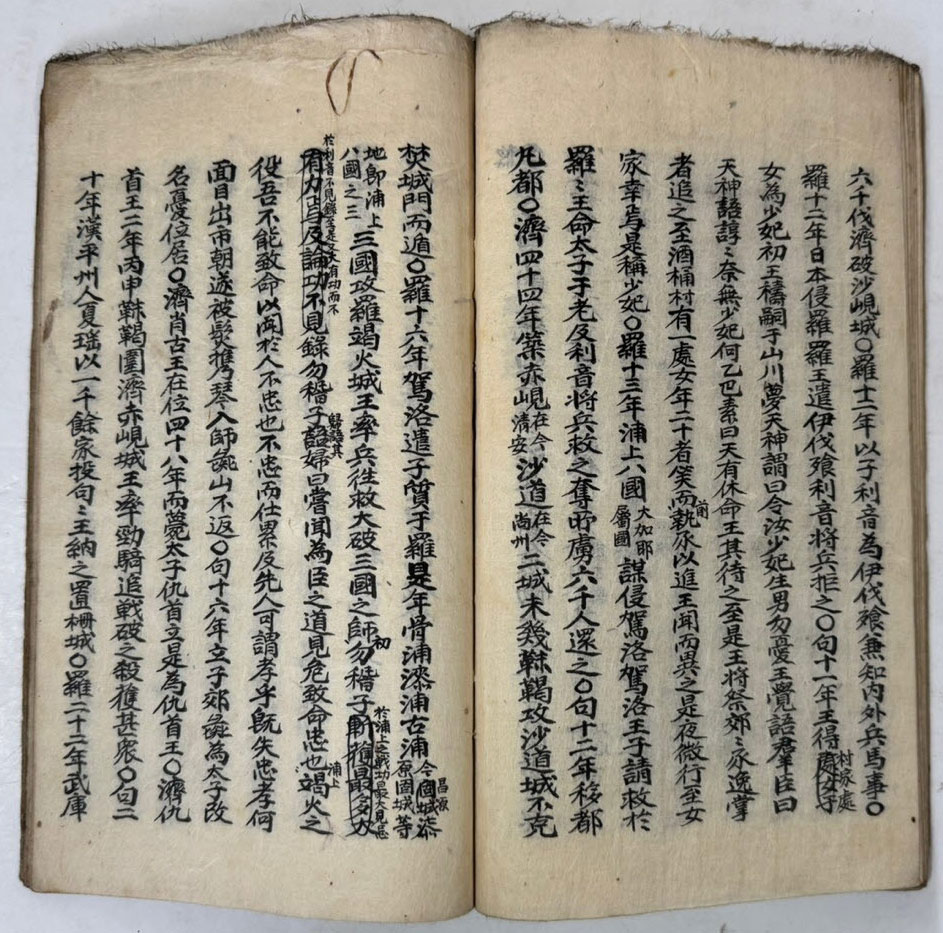 六千伐濟破沙峴城〇羅十二年以子利音為伊伐飡兼知內外兵馬事〇
羅十三年日本侵羅羅王遣伊伐飡利音將兵拒之〇句十一年王得
村家處
女為少妃初王禱嗣于山川夢天神謂曰令汝少妃生男勿憂王覺語羣臣曰
天神語諄〻奈無少妃何乙巴素曰天有休命王其待之至是王將祭郊〻永逸掌
者追之至酒桶村有一處女年二十者笑而
前
執永以進王聞而異之是夜微行至女
家幸焉是稱少妃〇羅十三年浦上八國
大加耶
屬國
謀侵駕洛駕洛王子請救於
羅〻王命太子于老及利音將兵救之奪所虜六千人還之〇句十二年移都
丸都〇濟四十四年築赤峴
在今
清安
沙道
在今
尚州
二城未幾靺鞨攻沙道城不克
焚城門而遁〇羅十六年駕洛遣子質于羅是年骨浦漆浦古浦
昌原
今固城漆
原固城
等
地即浦上
八國之三
三國攻羅竭火城王率兵往救大破三國之師
初
勿稽子
斬獲最多
於浦上之戰功最大見忌
於利音不見錄至是又大有功而不
有力焉及論功不見錄勿稽子
語婦曰嘗聞為臣之道見危致命忠也
浦上
竭火之
役吾不能致命以聞於人不忠也不忠而仕累及先人可謂孝乎既失忠孝何
面目出市朝遂被髮携琴入師彘山不返〇句十六年立子郊彘為太子改
名憂位居〇濟肖古王在位四十八年而薨太子仇首立是為仇首王〇濟仇
首王二年丙申靺鞨圍濟赤峴城王率勁騎追戰破之殺獲甚衆〇句二
十年漢平州人夏瑤以一千餘家投句〻王納之置柵城〇羅二十二年武庫